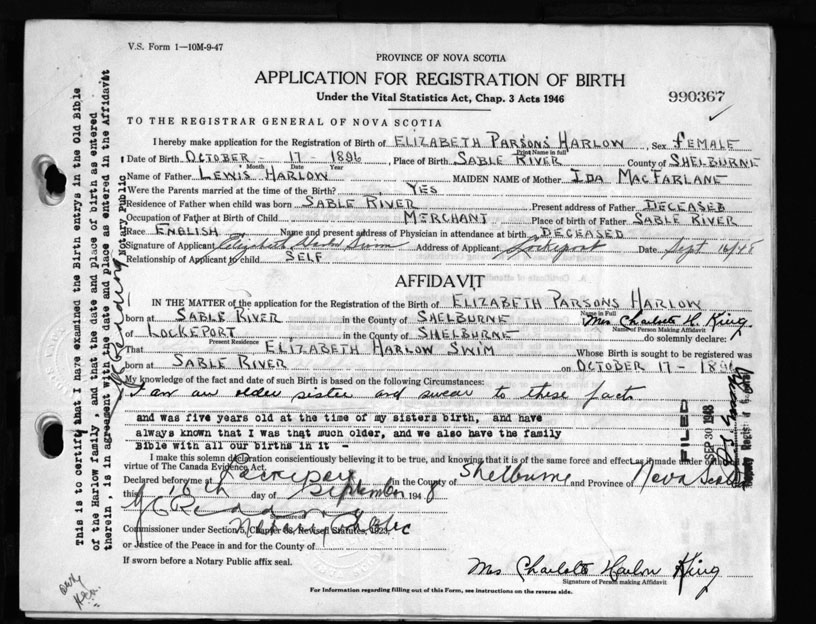 V.S. Form 1—10M-9-47
PROVINCE OF NOVA SCOTIA
APPLICATION FOR REGISTRATION OF BIRTH
Under the Vital Statistics Act, Chap. 3 Acts 1946
990367
TO THE REGISTRAR GENERAL OF NOVA SCOTIA
I hereby make application for the Registration of Birth of ELIZABETH PARSONS HARLOW, Sex FEMALE
Print Name in full
Date of Birth OCTOBER - 17 - 1896, Place of Birth SABLE RIVER County of SHELBURNE
Month Date Year
Name of Father LEWIS HARLOW MAIDEN NAME of Mother IDA MACFARLANE
Were the Parents married at the time of the Birth? YES
Residence of Father when child was born SABLE RIVER Present address of Father DECEASED
Occupation of Father at Birth of Child MERCHANT Place of birth of Father SABLE RIVER
Race ENGLISH Name and present address of Physician in attendance at birth DECEASED
Signature of Applicant Elizabeth Harlow Swim Address of Applicant Lockeport Date Sept 16/48
Relationship of Applicant to child SELF
AFFIDAVIT
IN THE MATTER of the application for the Registration of the Birth of ELIZABETH PARSONS HARLOW
Name in Full
born at SABLE RIVER in the County of SHELBURNE Mrs Charlotte H. King
Name of Person Making Affidavit
of LOCKEPORT in the County of SHELBURNE do solemnly declare:
Present Residence
That ELIZABETH HARLOW SWIM Whose Birth is sought to be registered was
born at SABLE RIVER on OCTOBER 17 - 1896
My knowledge of the fact and date of such Birth is based on the following Circumstances:
I am an older sister and swear to these facts
and was five years old at the time of my sisters birth, and have
always known that I was that much older, and we also have the family
Bible with all our births in it -
I make this solemn declaration conscientiously believing it to be true, and knowing that it is of the same force and effect as if made under
virtue of The Canada Evidence Act.
Declared before me at Lockeport in the County of Shelburne and Province of Nova Scotia
this 16th day of September 1948
J C Redding
Signature of
Notary Public
Commissioner under Section 5, Chapter 68, Revised Statutes, 1923,
or Justice of the Peace in and for the County of
If sworn before a Notary Public affix seal.
Mrs Charlotte Harlow King
Signature of Person making Affidavit
For Information regarding filling out of this Form, see instructions on the reverse side.
This is to certify that I have examined the Birth entrys in the Old Bible
of the Harlow family, and that the date and place of birth as entered
therein, is in agreement with the date and place as entered in the Affidavit
J C Redding Notary Public
FILED
SEP 30 1948
Deputy Registrar